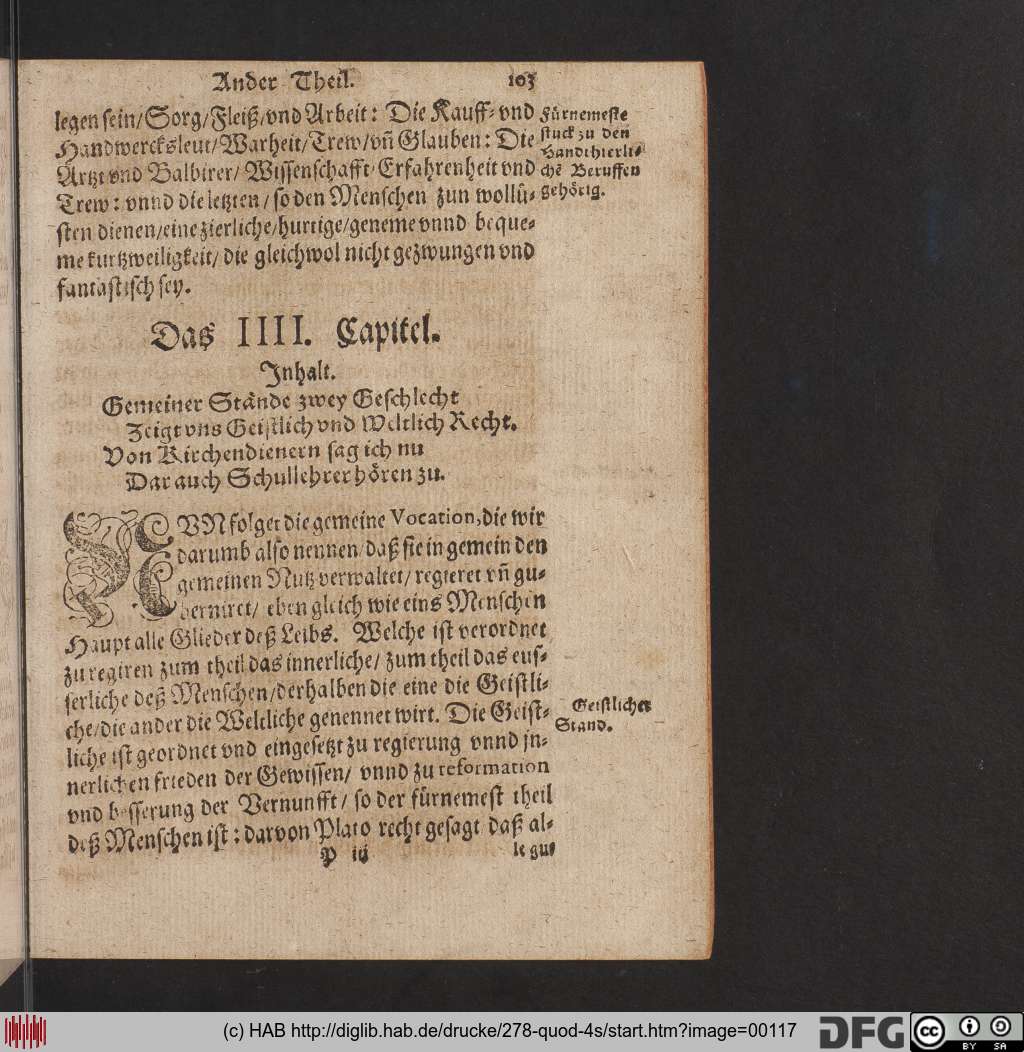 Ander Theil. 103
legen sein/Sorg/Fleiß/vnd Arbeit: Die Kauff- vnd
Handwercksleut/Warheit/Trew/vñ Glauben: Die
Ärtzt vnd Balbirer/ Wissenschafft/Erfahrenheit vnd
Trew: vnnd die letzten/ so den Menschen zun wollü-
sten dienen/eine zierliche/hurtige/geneme vnnd beque-
me kurtzweiligkeit/ die gleichwol nicht gezwungen vnd
fantastisch sey.
Fürnemeste
stuck zu den
Handthierli-
chē Beruffen
gehörig.
Das IIII. Capitel.
Inhalt.
Gemeiner Stände zwey Geschlecht
Zeigt vns Geistlich vnd Weltlich Recht.
Von Kirchendienern sag ich nu
Dar auch Schullehrer hören zu.
NVN folget die gemeine Vocation, die wir
darumb also nennen/daß sie in gemein den
gemeinen Nutz verwaltet/ regieret vñ gu-
berniret/ eben gleich wie eins Menschen
Haupt alle Glieder deß Leibs. Welche ist verordnet
zu regiren zum theil das innerliche/ zum theil das eus-
serliche deß Menschen/derhalben die eine die Geistli-
che/die ander die Weltliche genennet wirt. Die Geist-
liche ist geordnet vnd eingesetzt zu regierung vnnd jn-
nerlichen frieden der Gewissen/ vnnd zu reformation
vnd besserung der Vernunfft/ so der fürnemest theil
deß Menschen ist: darvon Plato recht gesagt daß al-
Geistlicher
Stand.
P iij le gu-
(c) HAB http://diglib.hab.de/drucke/278-quod-4s/start.htm?image=00117
DFG
cc BY SA